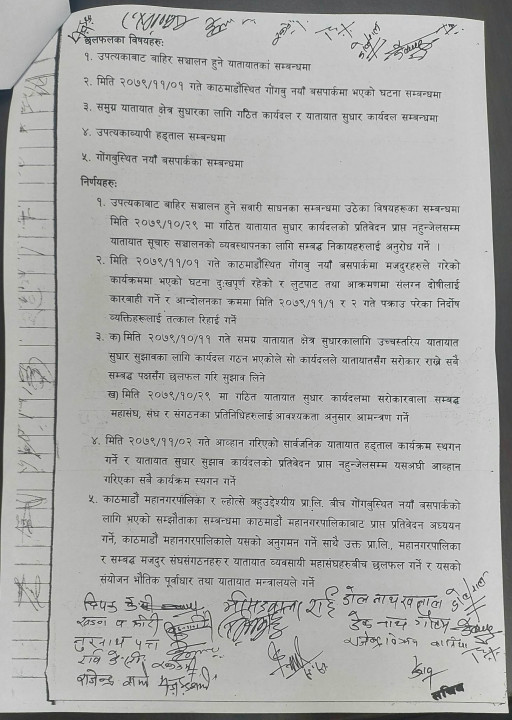 छलफलका विषयहरुः
१. उपत्यकाबाट बाहिर सञ्चालन हुने यातायातका सम्बन्धमा
२. मिति २०७९/११/०१ गते काठमाडौंस्थित गोंगबु नयाँ बसपार्कमा भएको घटना सम्बन्धमा
३. समग्र यातायात क्षेत्र सुधारका लागि गठित कार्यदल र यातायात सुधार कार्यदल सम्बन्धमा
४. उपत्यकाव्यापी हड्ताल सम्बन्धमा
५. गोंगबुस्थित नयाँ बसपार्कका सम्बन्धमा
निर्णयहरुः
१. उपत्यकाबाट बाहिर सञ्चालन हुने सवारी साधनका सम्बन्धमा उठेका विषयहरूका सम्बन्धमा
मिति २०७९/१०/२९ मा गठित यातायात सुधार कार्यदलको प्रतिवेदन प्राप्त नहुन्जेलसम्म
यातायात सुचारु सञ्चालनको व्यवस्थापनका लागि सम्बद्ध निकायहरुलाई अनुरोध गर्ने ।
२. मिति २०७९/११/०१ गते काठमाडौंस्थित गोंगबु नयाँ बसपार्कमा मजदुरहरुले गरेको
कार्यक्रममा भएको घटना दुःखपूर्ण रहेको र लुटपाट तथा आक्रमणमा संलग्न दोषीलाई
कारबाही गर्ने र आन्दोलनका क्रममा मिति २०७९/११/१ र २ गते पक्राउ परेका निर्दोष
व्यक्तिहरूलाई तत्काल रिहाई गर्ने
३. क) मिति २०७९/१०/११ गते समग्र यातायात क्षेत्र सुधारकालागि उच्चस्तरिय यातायात
सुधार सुझावका लागि कार्यदल गठन भएकोले सो कार्यदलले यातायातसँग सरोकार राख्ने सबै
सम्बद्ध पक्षसँग छलफल गरि सुझाव लिने
ख) मिति २०७९/१०/२९ मा गठित यातायात सुधार कार्यदलमा सरोकारवाला सम्बद्ध
महासंघ, संघ र संगठनका प्रतिनिधिहरुलाई आवश्यकता अनुसार आमन्त्रण गर्ने
४. मिति २०७९/११/०२ गते आव्हान गरिएको सार्वजनिक यातायात हड्ताल कार्यक्रम स्थगन
गर्ने र यातायात सुधार सुझाव कार्यदलको प्रतिवेदन प्राप्त नहुन्जेलसम्म यसअघी आव्हान
गरिएका सबै कार्यक्रम स्थगन गर्ने
५. काठमाडौं महानगरपालिका र ल्होत्से बहुउद्देश्यीय प्रा.लि. बीच गोंगबुस्थित नयाँ बसपार्कको
लागि भएको सम्झौताका सम्बन्धमा काठमाडौं महानगरपालिकाबाट प्राप्त प्रतिवेदन अध्ययन
गर्ने, काठमाडौं महानगरपालिकाले यसको अनुगमन गर्ने साथै उक्त प्रा.लि., महानगरपालिका
र सम्बद्ध मजदुर संघसंगठनहरु र यातायात व्यवसायी महासंघहरुबीच छलफल गर्ने र यसको
संयोजन भौतिक पूर्वाधार तथा यातायात मन्त्रालयले गर्ने
सचिव